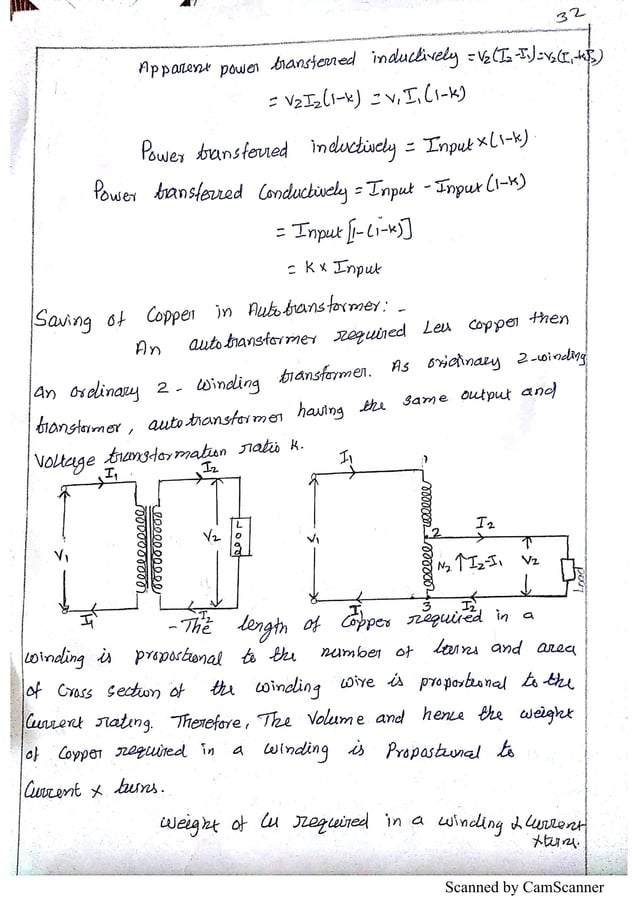 32
Apparent power transferred inductively = V2(I2-I1)=V2(I1-kI2)
= V2I2(1-k) = V1I1(1-k)
Power transferred inductively = Input×(1-k)
Power transferred Conductively = Input - Input(1-k)
= Input[1-(1-k)]
= K × Input
Saving of Copper in Autotransformer: -
An autotransformer required Less copper then
an ordinary 2 - winding transformer. As oridinary 2-winding
transformer, autotransformer having the same output and
Voltage transformation ratio K.
I1 I2 I1 1
V1 V2 Load V1 2 I2 N2 I2-I1 V2 Load
I1 I2 I1 3 I2
- The length of Copper required in a
winding is propostional to the number of turns and area
of Cross section of the winding wire is proportional to the
Current rating. Therefore, The Volume and hence the weight
of Copper required in a winding is Propostional to
Current × turns.
Weight of Cu required in a winding ∝ Current
×turns.
Scanned by CamScanner